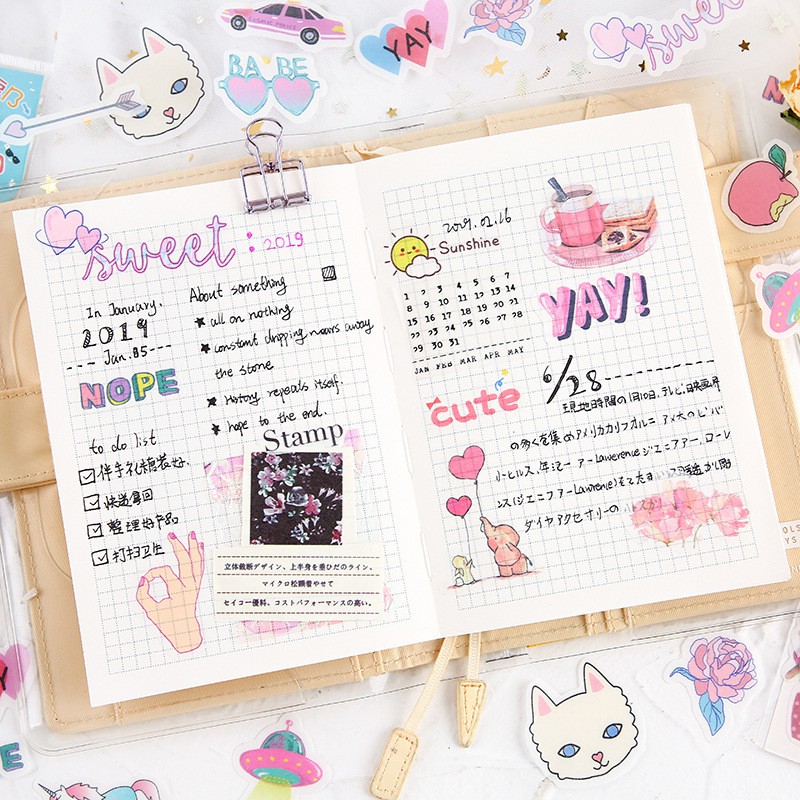 COSMIC POLICE
YAY
BABE
sweet
sweet: 2019
In January.
2019
Jan. 05
NOPE
to do list
伴手礼糖装好.
快送拿回
整理好产品
打扫卫生
About something
all on nothing
constant dripping wears away
the stone
History repeats itself.
hope to the end.
Stamp
立体裁断デザイン、上半身を垂ひだのライン、
マイクロ松顕着やせて
セイコー優料、コストパフォーマンスの高い。
2019.02.16
Sunshine
1 2 3 4 5 6 7
8 9 10 11 12 13 14
15 16 17 18 19 20 21
22 23 24 25 26 27 28
29 30 31
JAN FEB MAR APR MAY
YAY!
cute
6/28
現地時間の1月10日、テレビ、映画界
の多くを集め アメリカカリフオルニ ア
アーLawerence ジエニフアー.ローレ
ンス(ジエニフアーLawrence)
ダイヤアクセサリーの